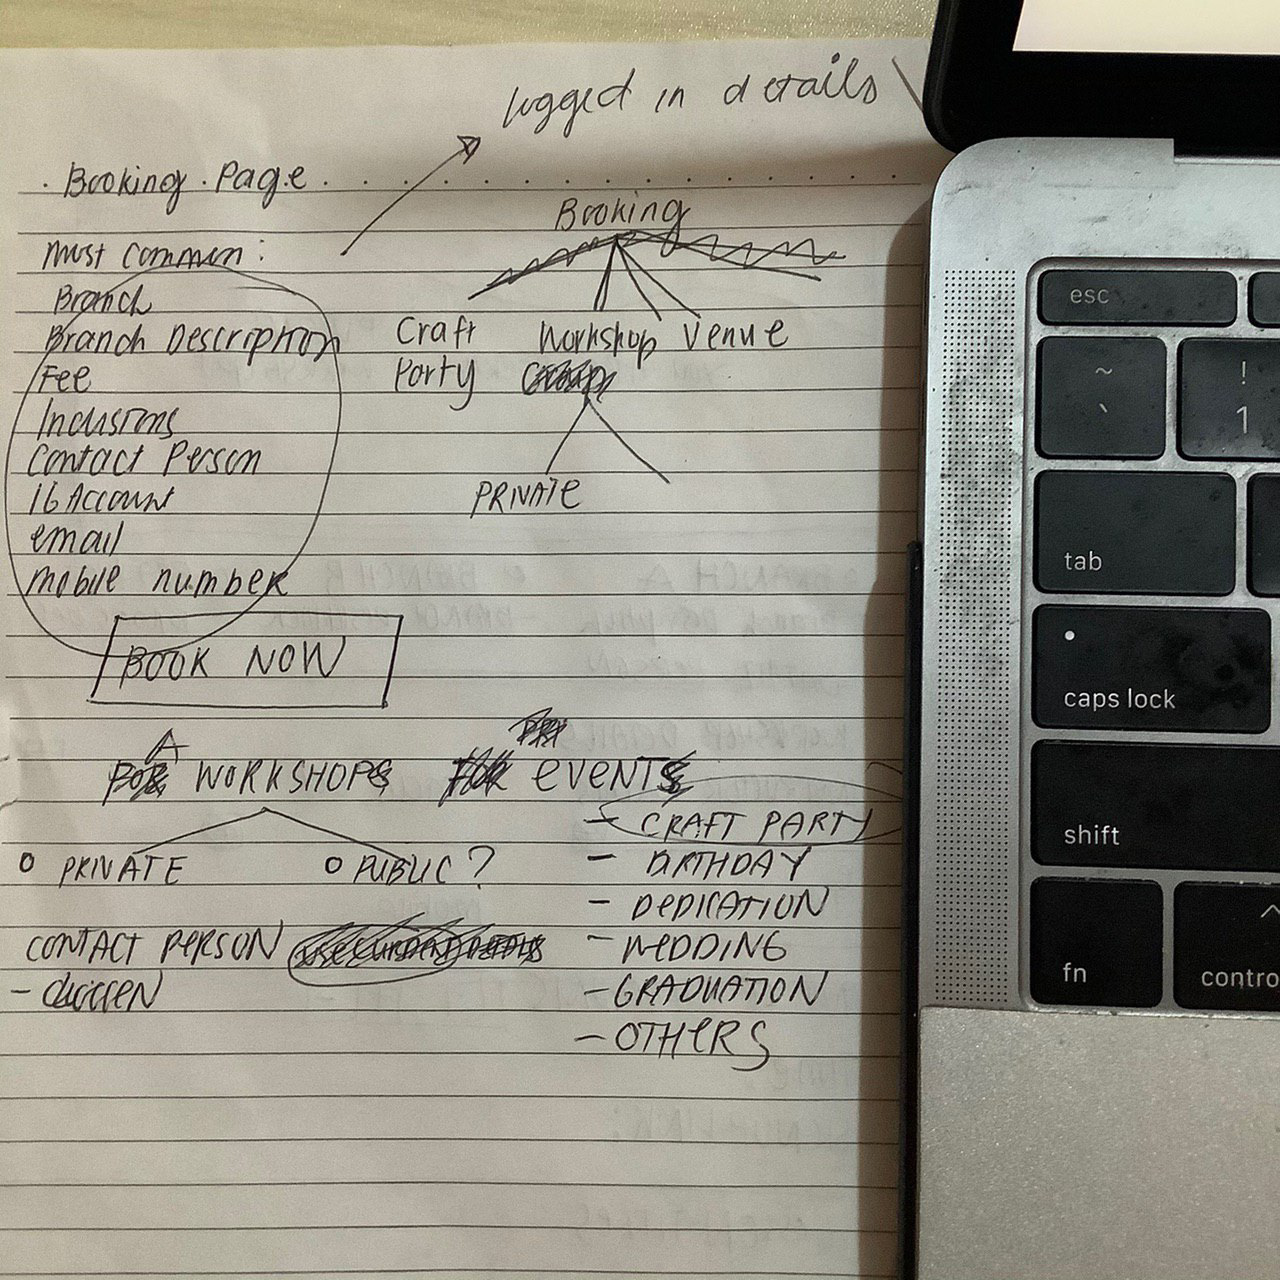 logged in details
Booking Page
Booking
Must Common:
Branch
Branch Description
Fee
Inclusions
Contact Person
IG Account
email
mobile number
Craft Workshop Venue
Party
PRIVATE
BOOK NOW
A
WORKSHOP EVENT
- CRAFT PARTY
PRIVATE PUBLIC?
- BIRTHDAY
- DEDICATION
CONTACT PERSON
- WEDDING
- GRADUATION
- OTHERS
esc
~
`
!
1
tab
caps lock
shift
fn
contro